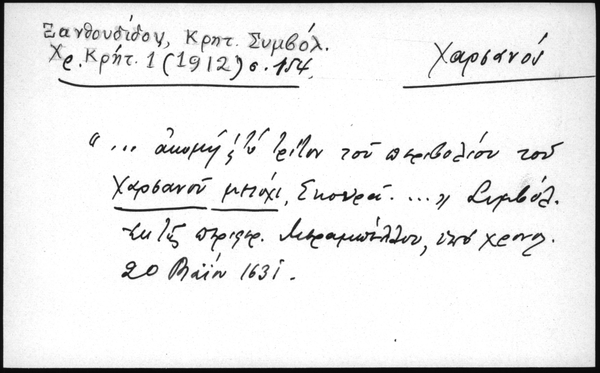 Ξανθουδίδου, Κρητ. Συμβόλ.
Χρ. Κρήτ. 1 (1912) σ. 154.
Χαρσανού
"... ἀκομή τὸ τρίτον τοῦ περιβολίου τοῦ
Χαρσανοῦ μετόχι, Σκουρᾶ ...» Συμβόλ.
ἐκ τῆς περιφερ. Μεραμπέλλου, ὑπὸ χρονολ.
20 Μαΐου 1631.